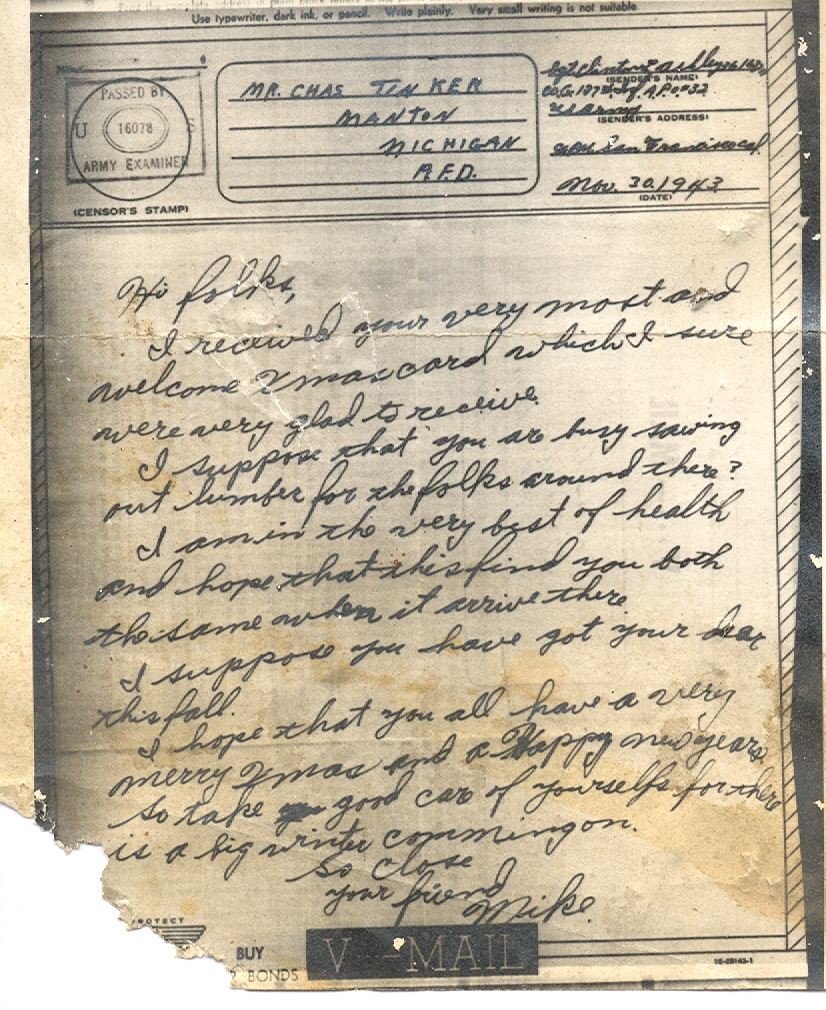 Use typewriter, dark ink, or pencil. Write plainly. Very small writing is not suitable.
PASSED BY
U 16078 S
ARMY EXAMINER
(CENSOR'S STAMP)
MR. CHAS TINKER
MANTON
MICHIGAN
R.F.D.
Sgt Clinton Ashley
(SENDER'S NAME)
Co. G. Inf. A.P.O. #32
U.S. Army
(SENDER'S ADDRESS)
San Francisco Cal.
Nov. 30, 1943
(DATE)
Hi folks,
I received your very most and
welcome Xmas card which I sure
were very glad to receive.
I suppose that you are busy sawing
out lumber for the folks around there?
I am in the very best of health
and hope that this find you both
the same when it arrive there
I suppose you have got your dear
this fall.
I hope that you all have a very
merry Xmas and a Happy new years
So take good car of yourselfs for there
is a big winter comming on.
So close
your friend
Mike.
PROTECT
BUY
BONDS
V -MAIL
16-28143-1